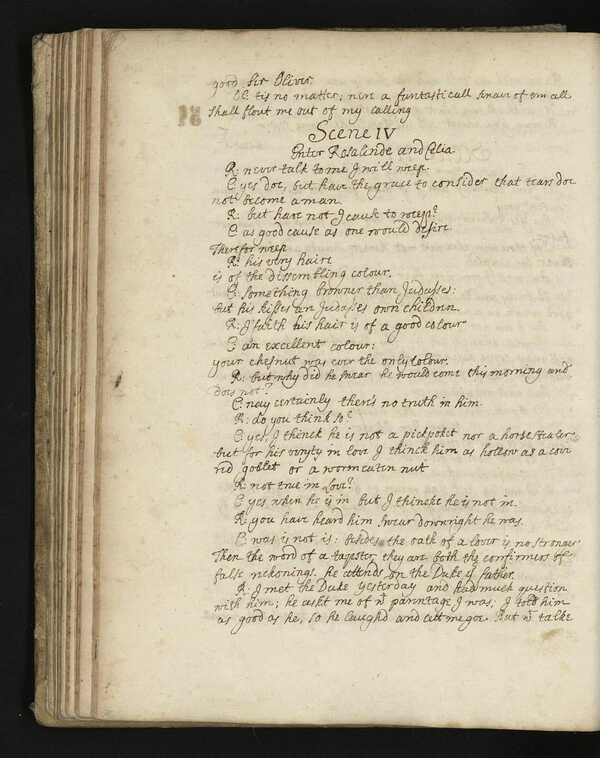 good Sir Oliver.
Cl: tis no matter; nere a fantasticall knave of em all
shall flout me out of my calling
Scene IV
Enter Rosalinde and Celia
R: never talk to me I will weep.
C: yes doe, but have the grace to consider that tears doe
not become a man.
R: but have not I cause to weep?
C: as good cause as one would desire
Therefor weep
R: his very haire
is of the dissembling colour.
C: something browner than Judasses:
but his kisses are Judasses own children.
R: I'faith his hair is of a good colour
C: an excellent colour:
your chesnut was ever the only colour.
R: but why did he swear he would come this morning and
does not?
C: nay certainly there's no truth in him.
R: do you think so?
C: yes, I thinck he is not a pickpoket nor a horse stealer
but for his verity in love I thinck him as hollow as a cove
red goblet or a wormeaten nut
R: not true in Love?
C: yes when he is in but I thincke he is not in.
R: you have heard him swear downright he was.
C: was is not is: besides the oath of a lover is no stronger
Then the word of a tapster, they are both the confirmers of
false reckonings. he attends on the Duke yr father.
R: I met the Duke yesterday and had much question
with him; he askt me of wt parentage I was; I told him
as good as he, so he laughd and let me goe. But wt talke